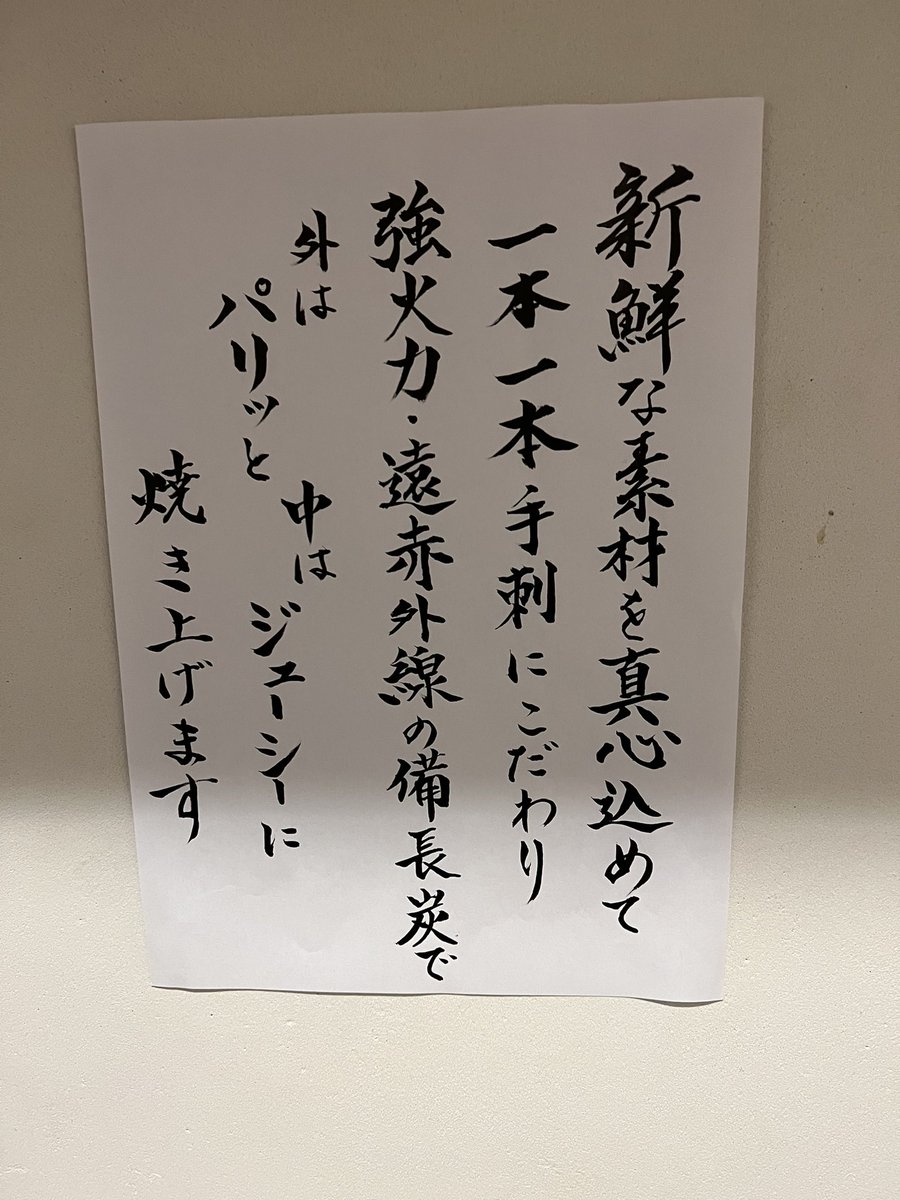 新鮮な素材を真心込めて
一本一本手刺にこだわり
強火力・遠赤外線の備長炭で
外は
パリッと
中は
ジューシーに
焼き上げます